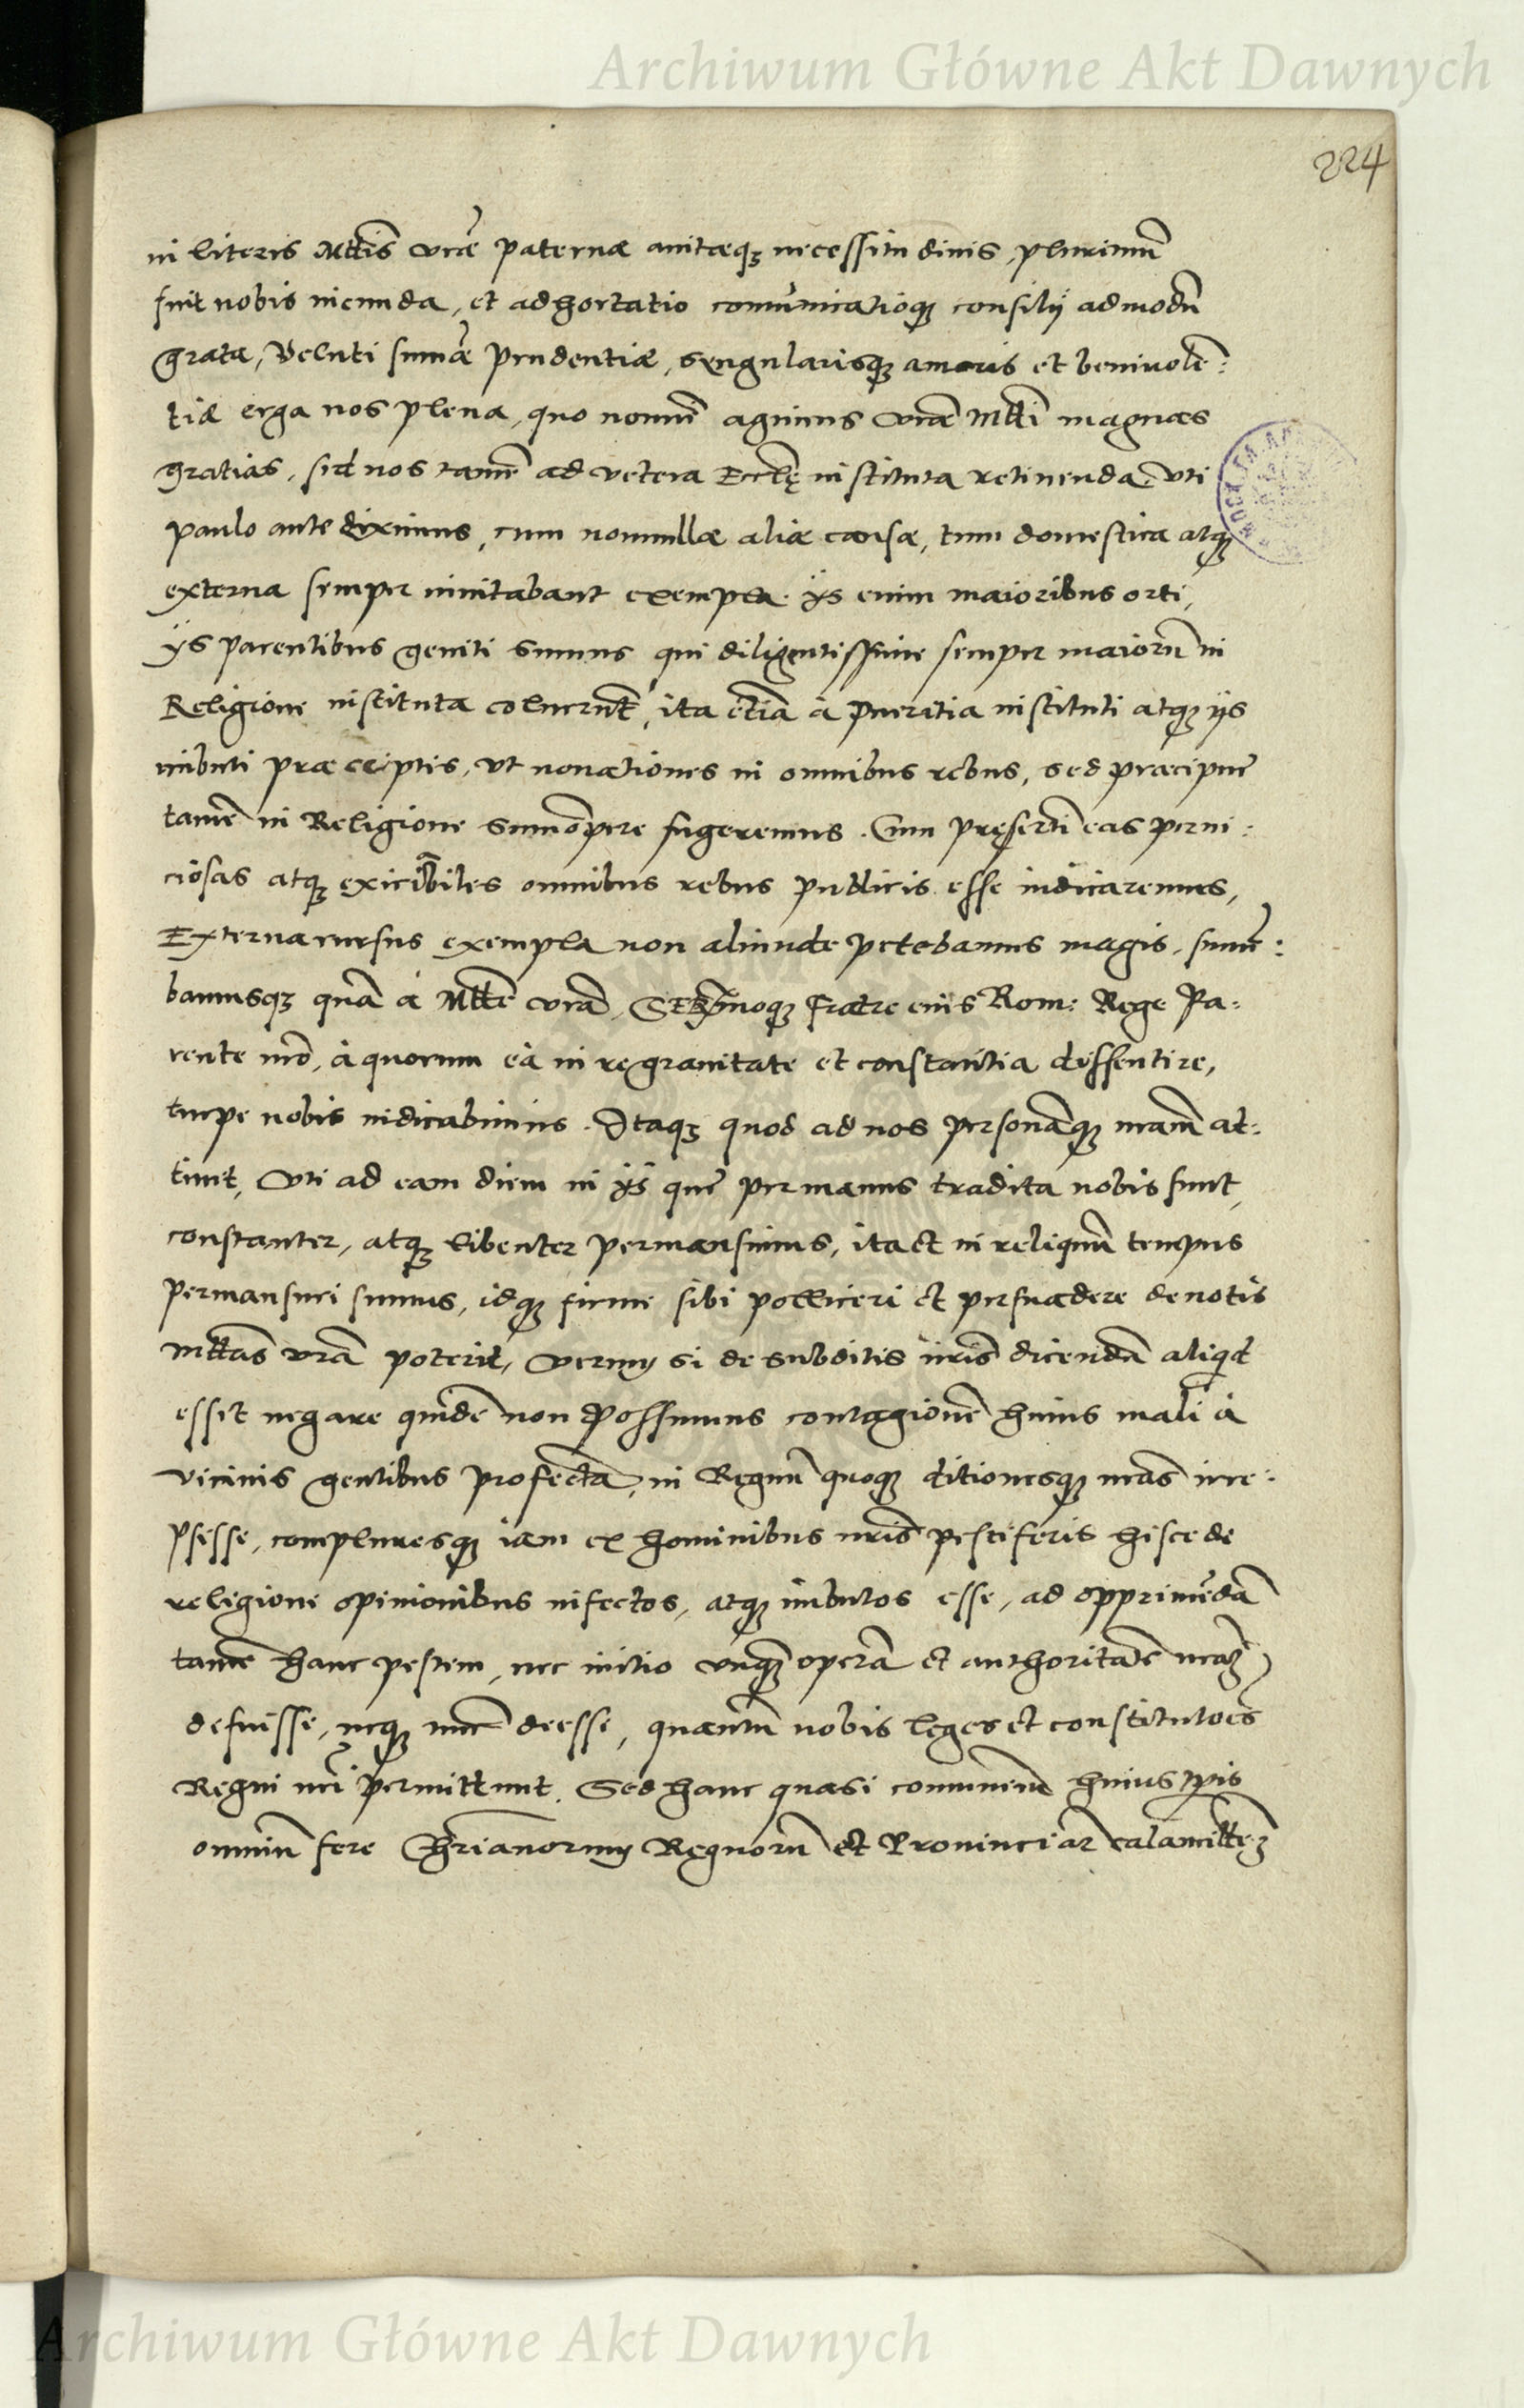 Archiwum Główne Akt Dawnych
224
in literis Mttis vrae paternae avitaeq; necessitudinis, plurimum
fuit nobis iucunda, et adhortatio comunicatioq; consilij admodu
grata, veluti sumae prudentiae, syngularisq; amoris et benivole:
tiae erga nos plena, quo nomine agimus vrae Mtti magnas
gratias, sed nos tamē ad vetera Ecclę instituta retinenda, uti
paulo ante diximus, cum nonnullae aliae causae, tum domestica atq;
externa semper invitabant exempla. ijs enim maioribus orti,
ijs parentibus geniti sumus qui diligentissime semper maiorū in
Religione instituta coluerūt, ita etiā à pueritia instituti atq; ijs
imbuti praeceiptis, ut novationes in omnibus rebus, sed praecipue
tamē in Religione sumōpere fugeremus. Cum pręsertī eas perni:
ciosas atq; exiciabiles omnibus rebus publicis esse iudicaremus,
Externa rursus exempla non aliunde petebamus magis, sume:
bamusq; quā à Mtte vrā, Sermoq; fratre eius Rom: Rege Pa:
rente nrō, à quorum eà in re gravitate et constantia dissentire,
turpe nobis iudicabimus. Itaq; quod ad nos personāq; nram at:
tinit, Uti ad eam diem in ijs que per manus tradita nobis sunt,
constanter, atq; libenter permansimus, ita et in reliquū tempus
permansuri sumus, idq; firme sibi polliceri et persuadere de notis
Mttas vrā poterit, verum si de subditis nris dicendū aliqd
esset negare quidē non possumus contagionē huius mali à
vicinis gentibus profectā, in Regnū quoq; ditionesq; nras irre:
psisse, compluresq; iam ex hominibus nris pestiferis hisce de
religione opinionibus infectos, atq; imbutos esse, ad opprimēdā
tamē hanc pestem, nec initio unq; operā et authoritatē nraz
defuisse, neq; nūc deesse, quantū nobis leges et constitutoēs
Regni nri permittunt. Sed hanc quasi comunem huius tpis
omniū fere Chrianorum Regnorū et Provinciar calamittez
Archiwum Główne Akt Dawnych